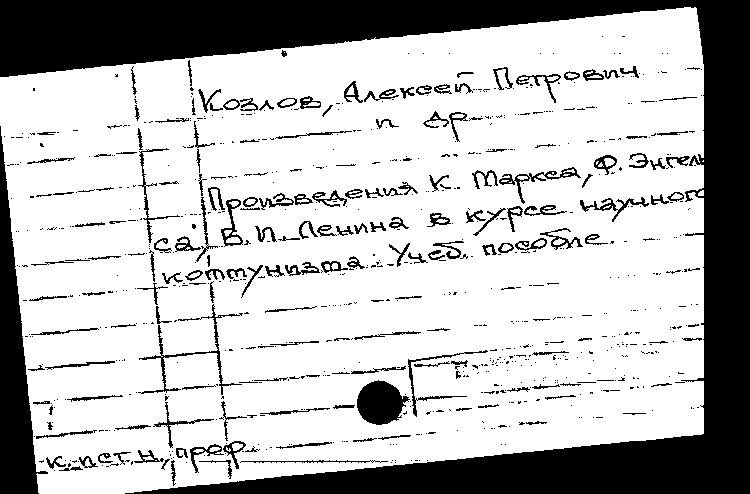 Козлов, Алексей Петрович
и др.
Произведения К. Маркса, Ф. Энгель
са, В.И. Ленина в курсе научного
коммунизма: Учеб. пособие.
к.ист.н., проф.